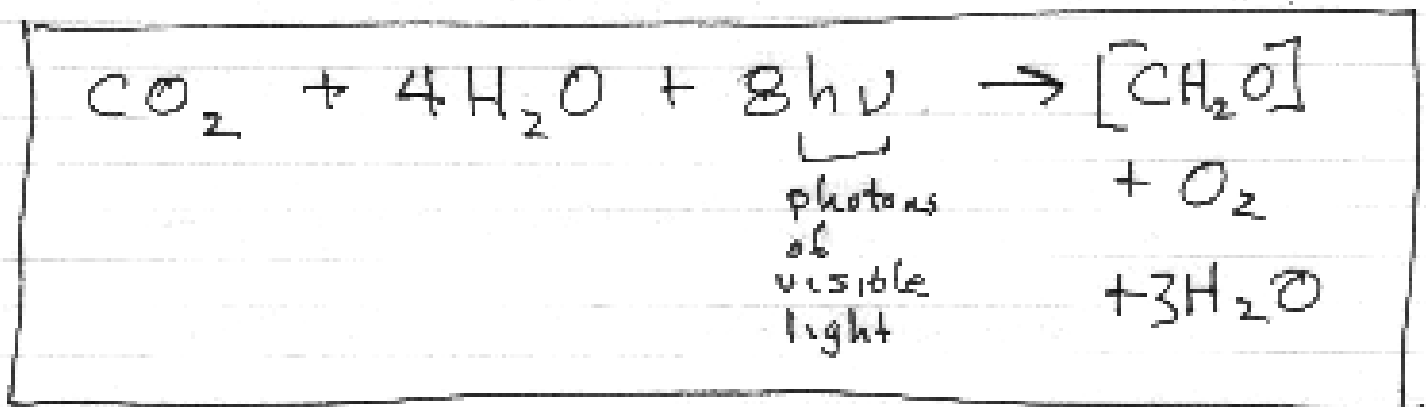 CO₂ + 4H₂O + 8hν → [CH₂O]
+ O₂
+3H₂O
photons
of
visible
light